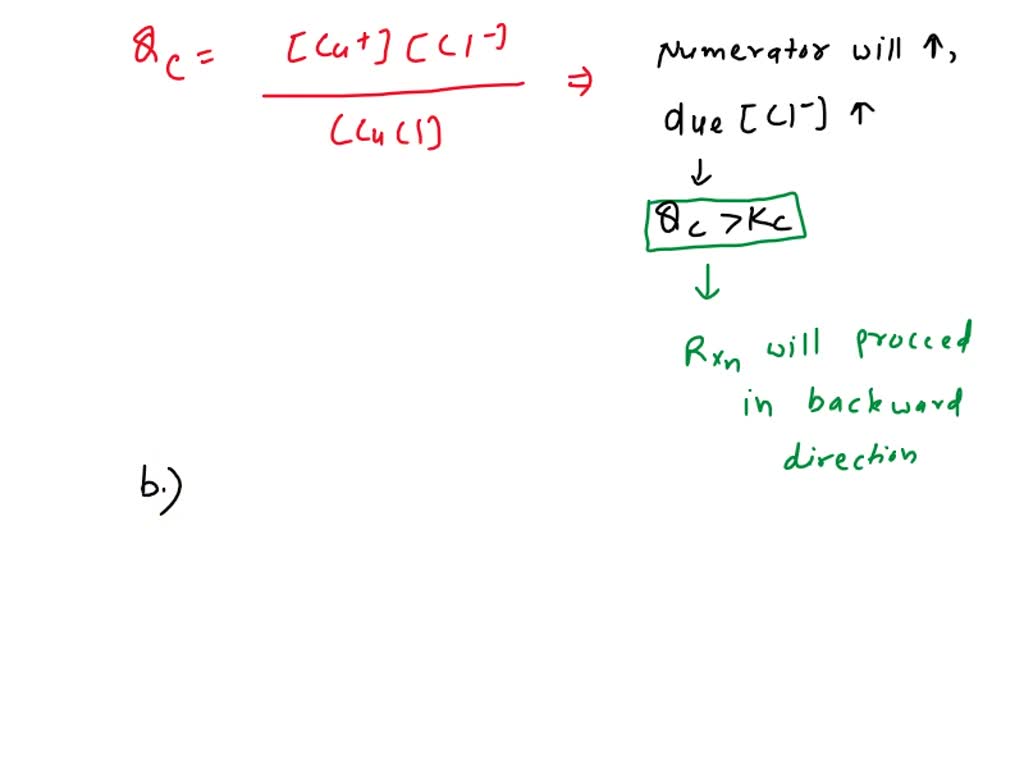 Qc = [Cu+] [Cl-] / [CuCl] ⇒
Numerator will ↑,
due [Cl-] ↑
↓
Qc > Kc
↓
Rxn will procced
in backward
direction
b.)